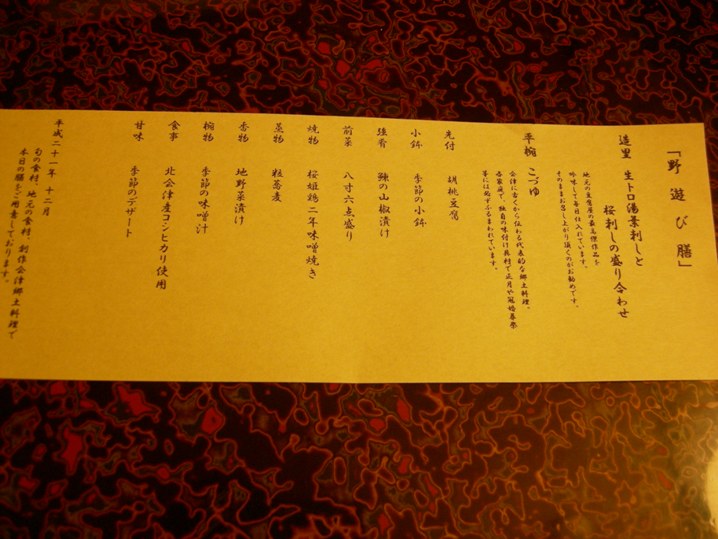 「野遊び膳」
造里 生トロ湯葉刺しと
桜刺しの盛り合わせ
地元の豆腐屋の最高傑作品を
吟味して毎日仕入れています。
そのままお召し上がり頂くのがお勧めです。
平椀 こづゆ
会津に古くから伝わる代表的な郷土料理。
各家庭で、独自の味付け具材で正月や冠婚葬祭
等には必ずふるまわれています。
先付 胡桃豆腐
小鉢 季節の小鉢
強肴 鰊の山椒漬け
前菜 八寸六点盛り
焼物 桜姫鶏二年味噌焼き
蒸物 粒蕎麦
香物 地野菜漬け
椀物 季節の味噌汁
食事 北会津産コシヒカリ使用
甘味 季節のデザート
平成二十一年 十二月
旬の食材、地元の食材、創作会津郷土料理で
本日の膳をご用意しております。